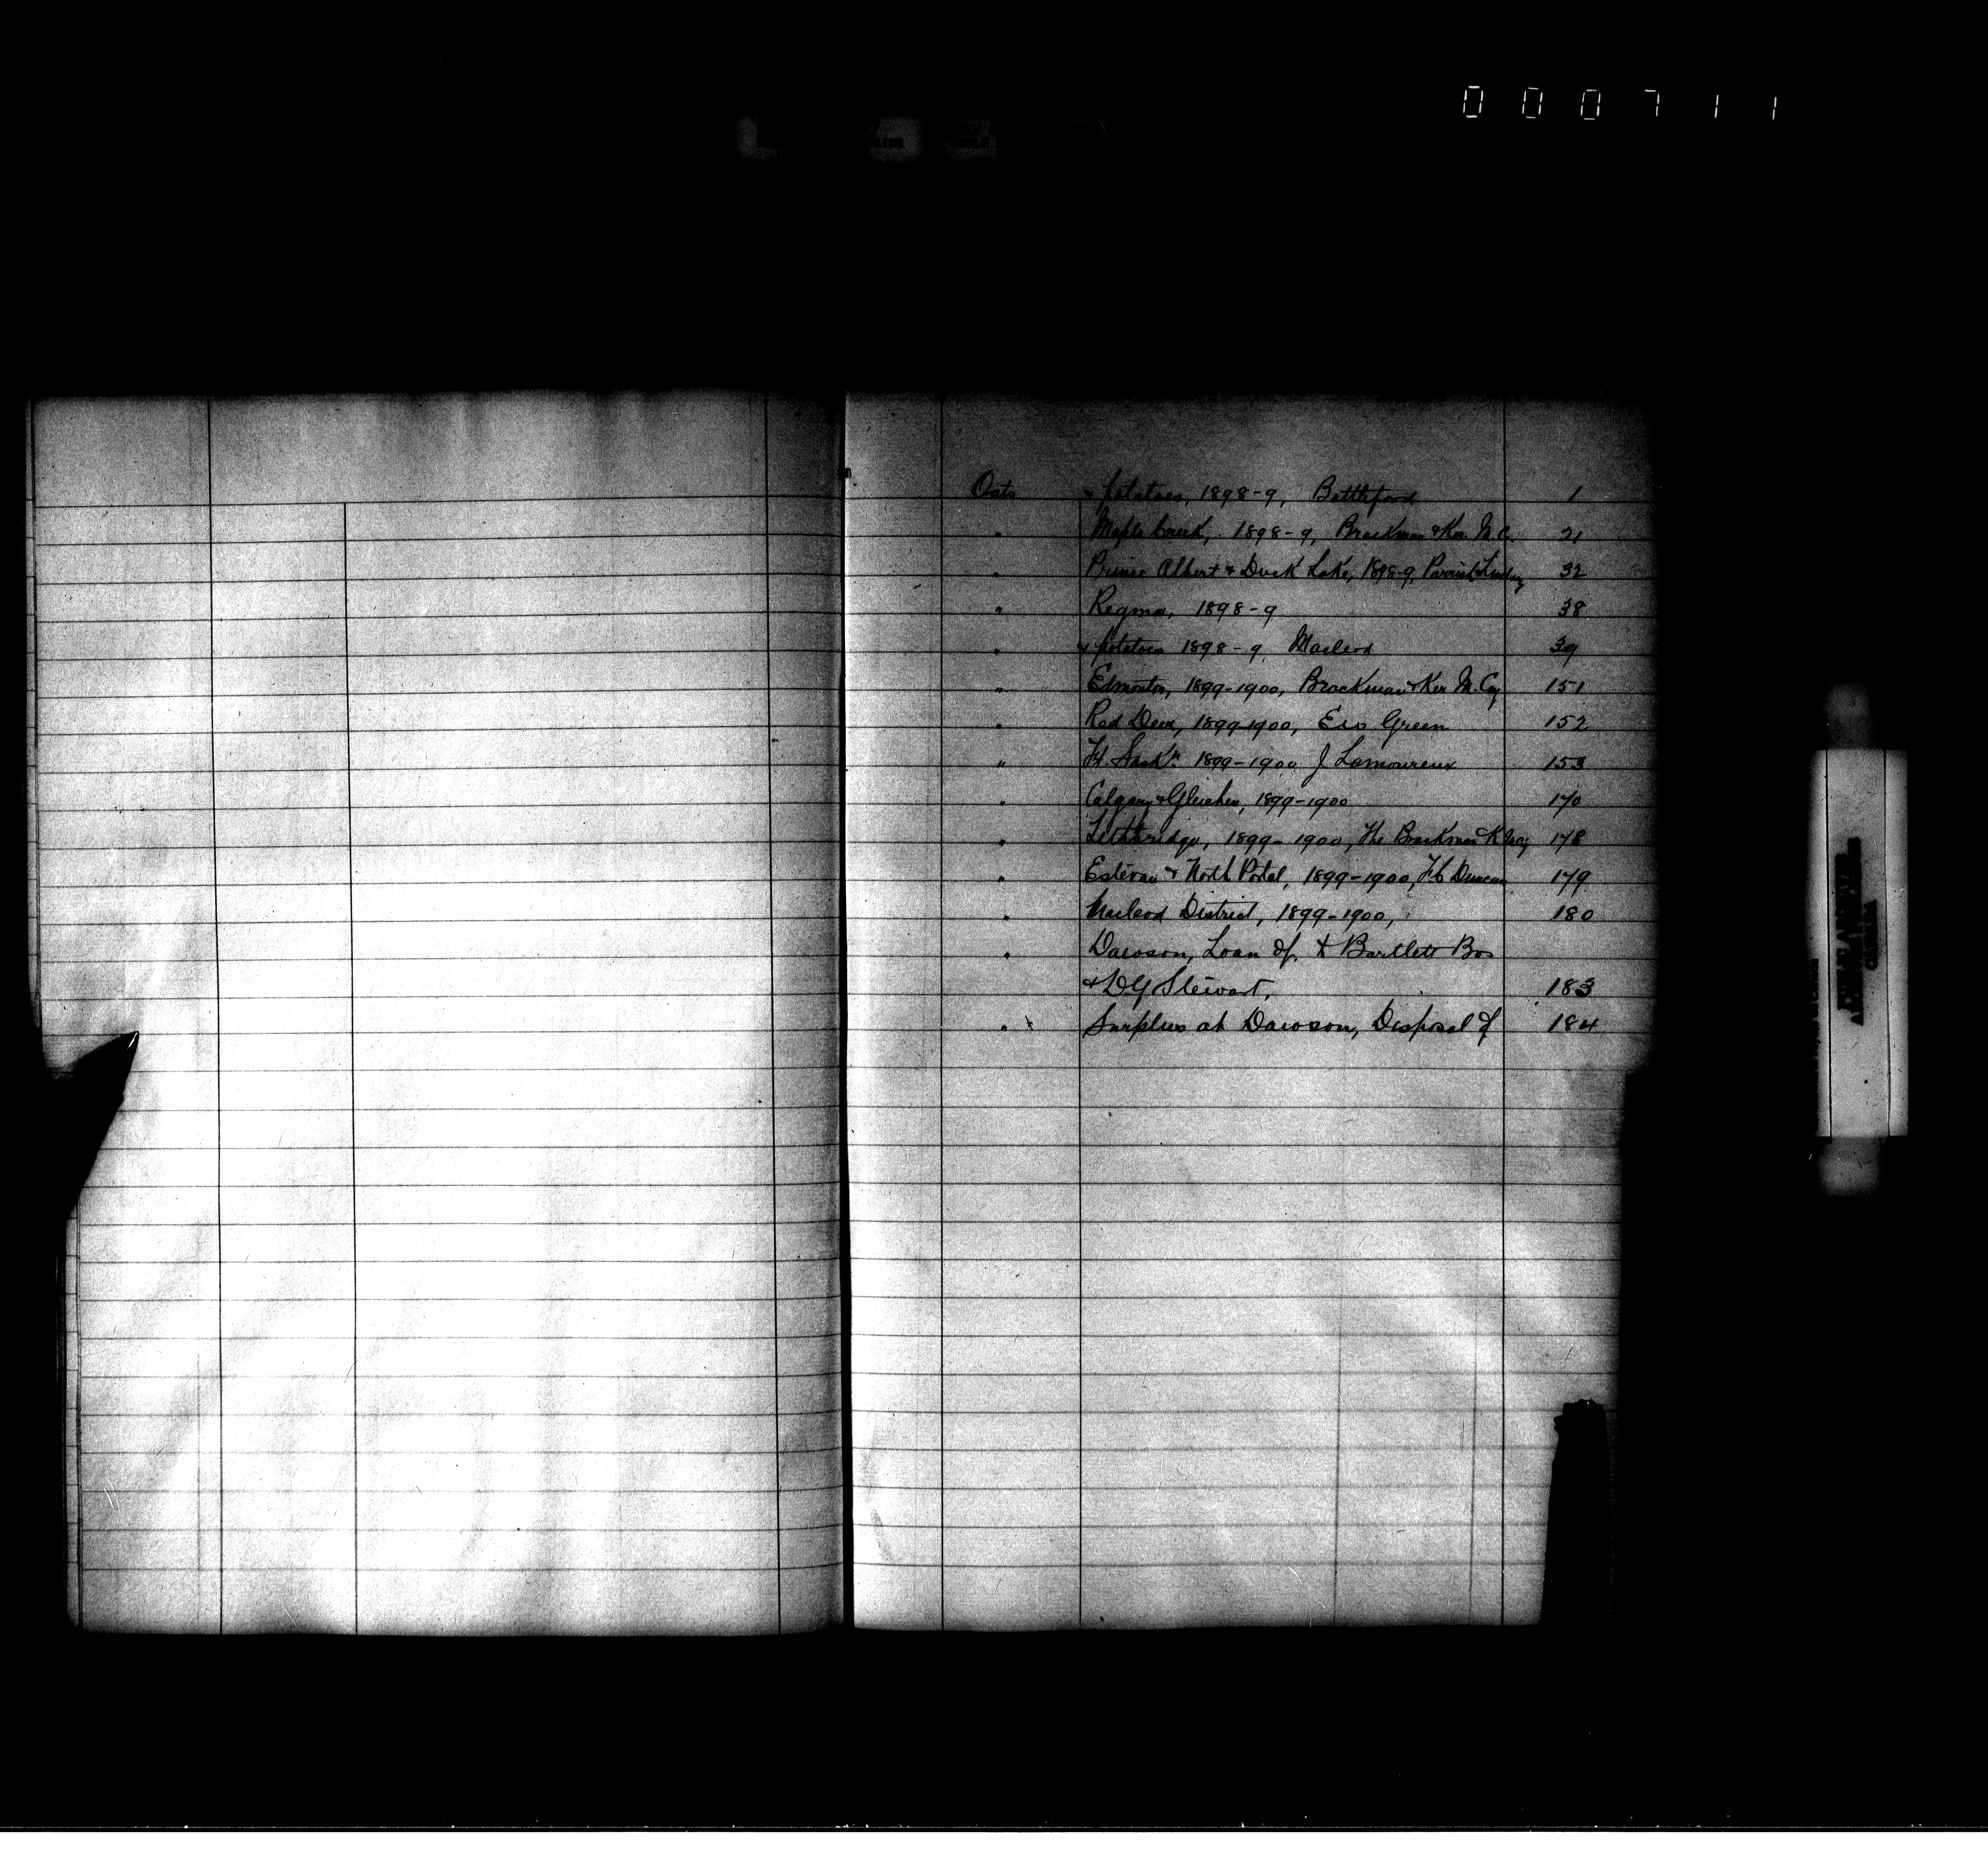 000711
Oats & potatoes, 1898-9, Battleford 1
" Maple Creek, 1898-9, Brackman & Ker M. Co. 21
" Prince Albert & Duck Lake, 1898-9, Parrish & Lindsay 32
" Regina, 1898-9 38
" & potatoes 1898-9 Macleod 39
" Edmonton, 1899-1900, Brackman & Ker M. Coy 151
" Red Deer, 1899-1900, Green 152
" Ft. Sask'n 1899-1900 J Lamoureux 153
" Calgary & Gleichen, 1899-1900 170
" Lethbridge, 1899-1900, The Brackman K 178
" Estevan & North Portal, 1899-1900, Duncan 179
" Macleod District, 1899-1900, 180
" Dawson, Loan of, to Bartlett Bros
& D G Stewart, 183
" Surplus at Dawson, Disposal of 184